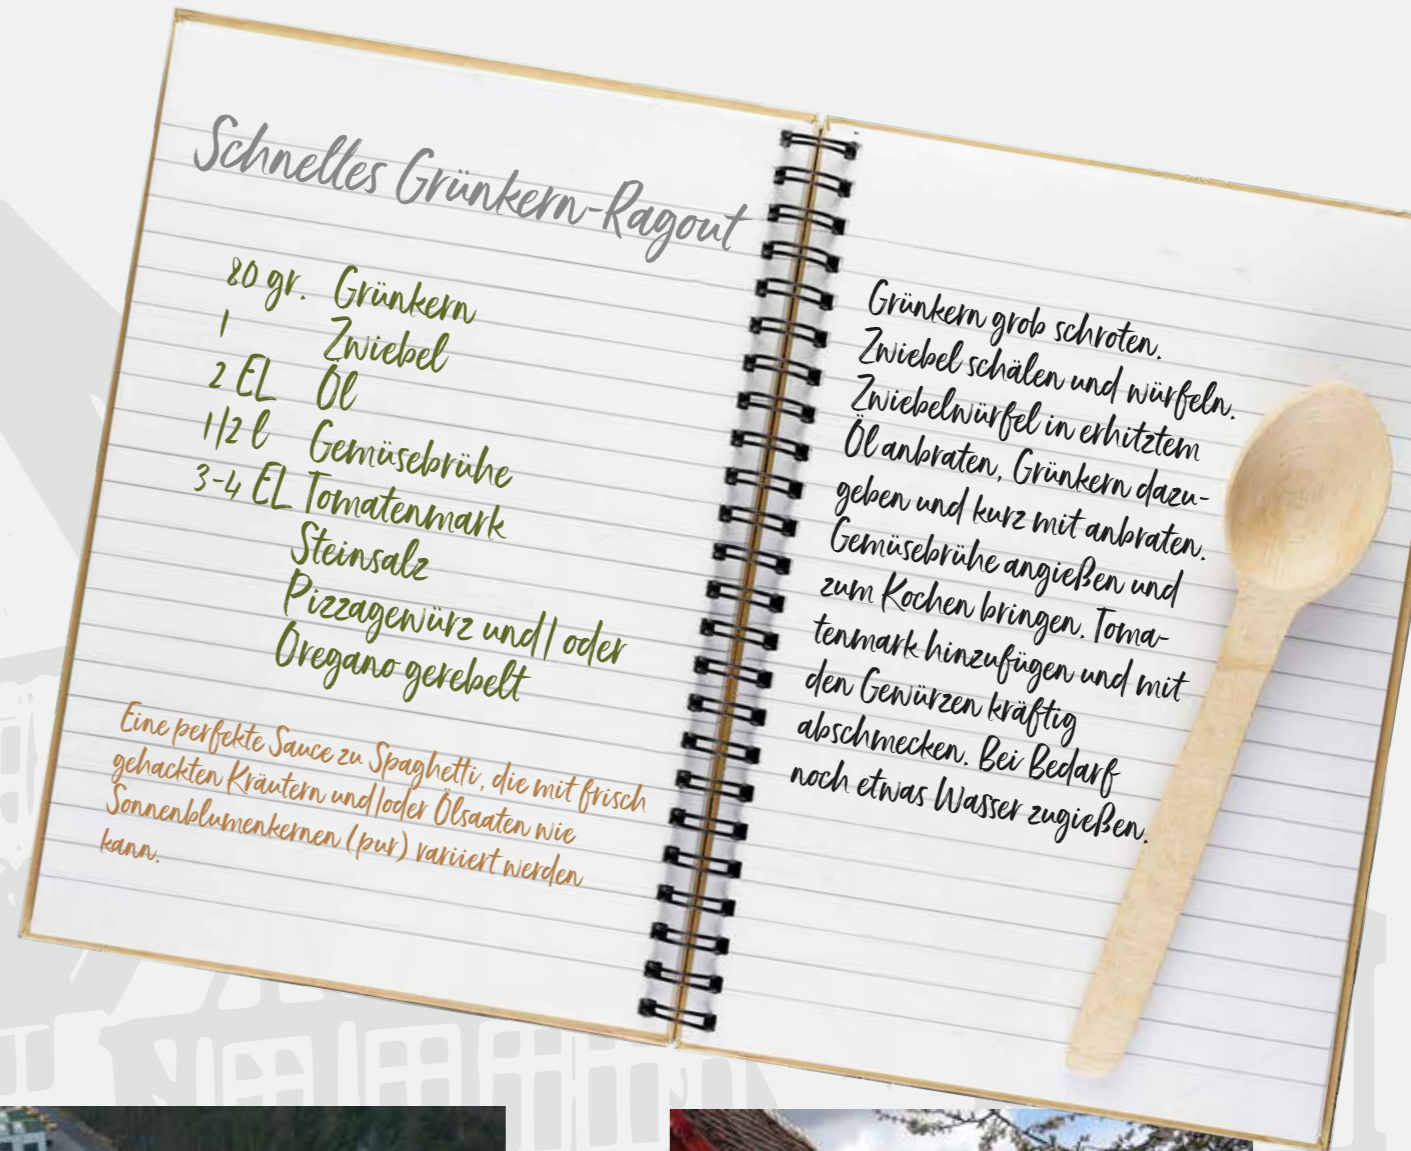 Schnelles Grünkern-Ragout
80 gr. Grünkern
1 Zwiebel
2 EL Öl
1/2 l Gemüsebrühe
3-4 EL Tomatenmark
Steinsalz
Pizzagewürz und/oder
Oregano gerebelt
Eine perfekte Sauce zu Spaghetti, die mit frisch
gehackten Kräutern und/oder Ölsaaten wie
Sonnenblumenkernen (pur) variiert werden
kann.
Grünkern grob schroten.
Zwiebel schälen und würfeln.
Zwiebelwürfel in erhitztem
Öl anbraten, Grünkern dazu-
geben und kurz mit anbraten.
Gemüsebrühe angießen und
zum Kochen bringen. Toma-
tenmark hinzufügen und mit
den Gewürzen kräftig
abschmecken. Bei Bedarf
noch etwas Wasser zugießen.